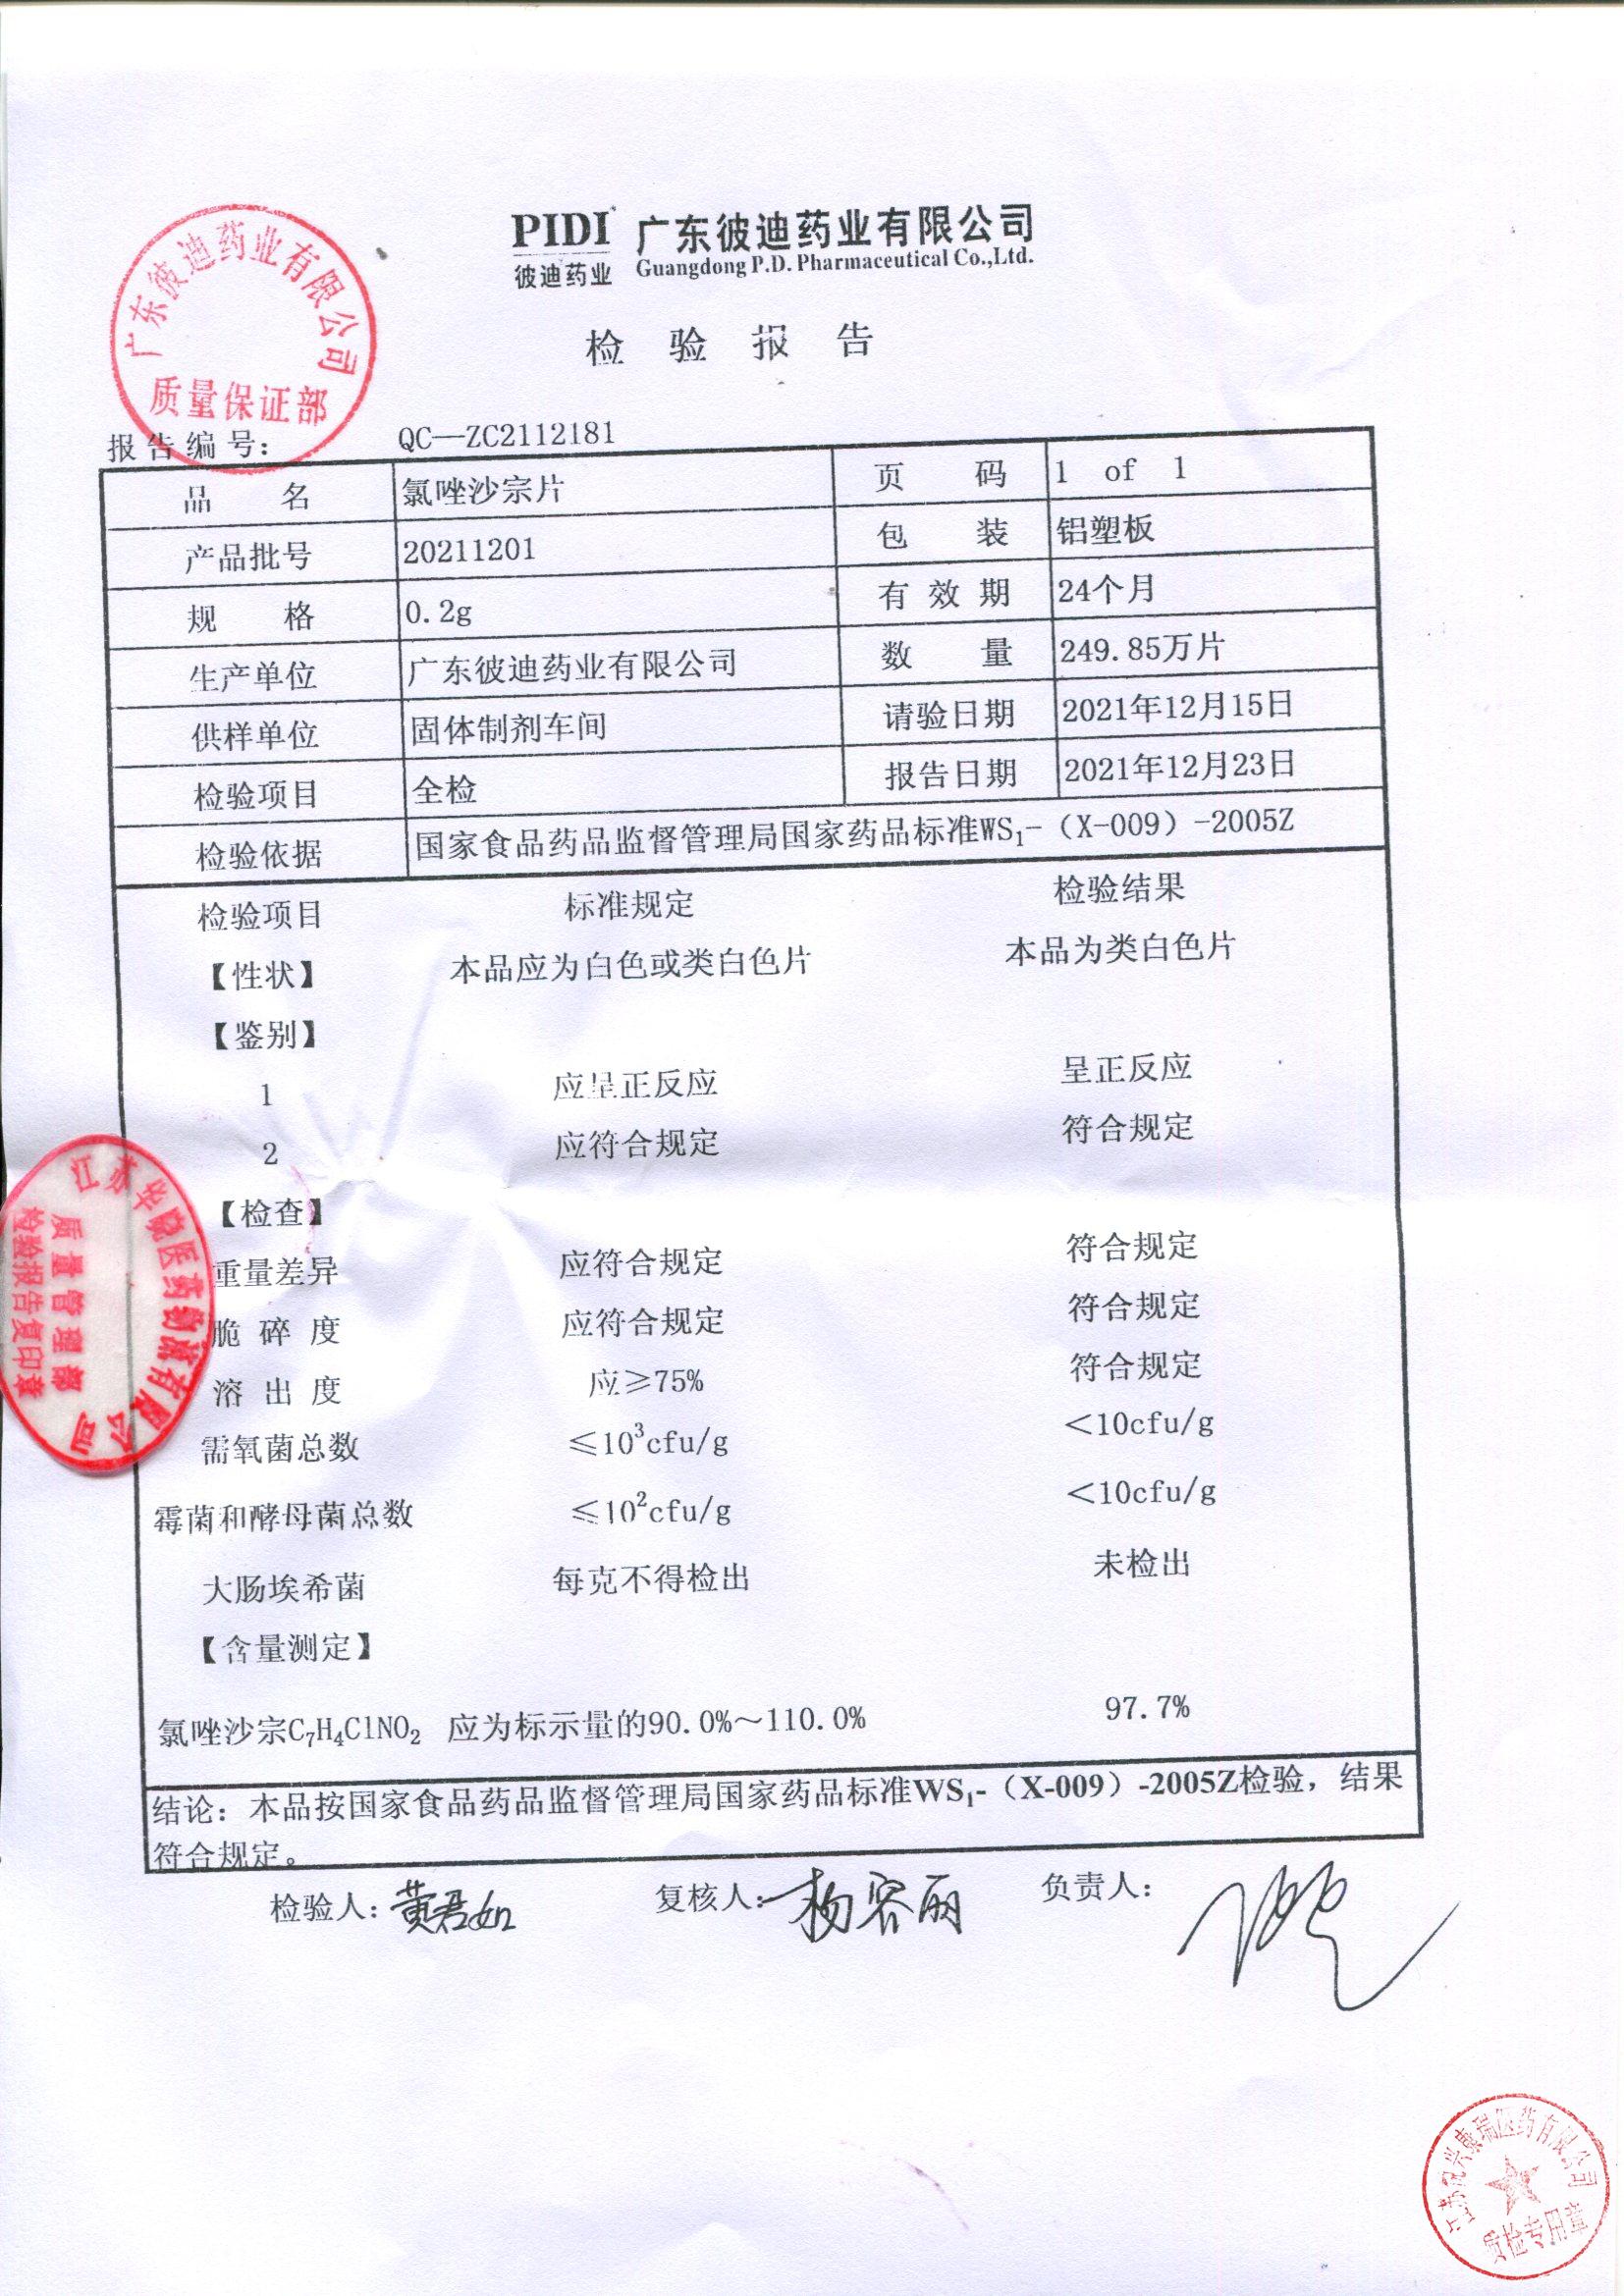 PIDI 广东彼迪药业有限公司
彼迪药业 Guangdong P.D. Pharmaceutical Co.,Ltd.
广东彼迪药业有限公司
质量保证部
检 验 报 告
报告编号： QC—ZC2112181
品 名 氯唑沙宗片 页 码 1 of 1
产品批号 20211201 包 装 铝塑板
规 格 0.2g 有 效 期 24个月
生产单位 广东彼迪药业有限公司 数 量 249.85万片
供样单位 固体制剂车间 请验日期 2021年12月15日
检验项目 全检 报告日期 2021年12月23日
检验依据 国家食品药品监督管理局国家药品标准WS₁-（X-009）-2005Z
检验项目 标准规定 检验结果
【性状】 本品应为白色或类白色片 本品为类白色片
【鉴别】
1 应呈正反应 呈正反应
2 应符合规定 符合规定
【检查】
重量差异 应符合规定 符合规定
脆 碎 度 应符合规定 符合规定
溶 出 度 应≥75% 符合规定
需氧菌总数 ≤10³cfu/g ＜10cfu/g
霉菌和酵母菌总数 ≤10²cfu/g ＜10cfu/g
大肠埃希菌 每克不得检出 未检出
【含量测定】
氯唑沙宗C₇H₄ClNO₂ 应为标示量的90.0%～110.0% 97.7%
结论：本品按国家食品药品监督管理局国家药品标准WS₁-（X-009）-2005Z检验，结果
符合规定。
检验人：黄君如 复核人：杨容丽 负责人：
江苏华晓医药物流有限公司
质量管理部
检验报告复印章
医药有限公司
质检专用章